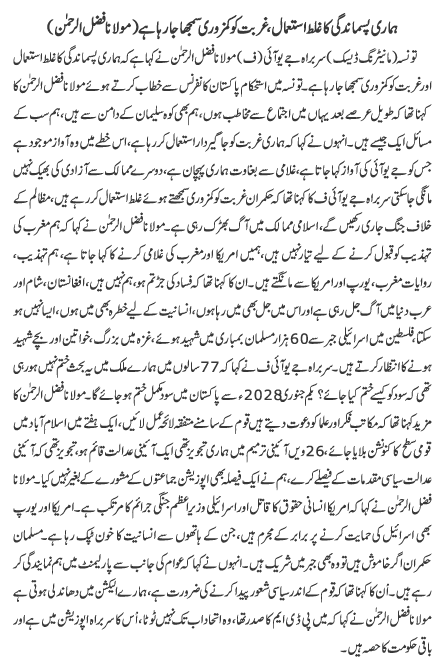 ہماری پسماندگی کا غلط استعمال، غربت کو کمزوری سمجھا جا رہا ہے (مولانا فضل الرحمٰن)
تونسہ (مانیٹرنگ ڈیسک) سربراہ جے یو آئی (ف) مولانا فضل الرحمٰن نے کہا ہے کہ ہماری پسماندگی کا غلط استعمال
اور غربت کو کمزوری سمجھا جا رہا ہے۔ تونسہ میں استحکام پاکستان کانفرنس سے خطاب کرتے ہوئے مولانا فضل الرحمٰن کا
کہنا تھا کہ طویل عرصے بعد یہاں میں اجتماع سے مخاطب ہوں، ہم کوہ سلیمان کے دامن سے ہیں، ہم سب کے
مسائل ایک جیسے ہیں۔ انہوں نے کہا کہ ہماری غربت کو جاگیردار استعمال کر رہا ہے، اس خطے میں وہ آواز موجود ہے
جس کو جے یو آئی کی آواز کہا جاتا ہے، غلامی سے بغاوت ہماری پہچان ہے، دوسرے ممالک سے آزادی کی بھیک نہیں
مانگی جا سکتی سربراہ جے یو آئی ف کا کہنا تھا کہ حکمران غربت کو کمزوری سمجھتے ہوئے غلط استعمال کر رہے ہیں، مظالم کے
خلاف جنگ جاری رکھیں گے، اسلامی ممالک میں آگ بھڑک رہی ہے۔ مولانا فضل الرحمٰن نے کہا کہ ہم مغرب کی
تہذیب کو قبول کرنے کے لیے تیار نہیں ہیں، ہمیں امریکا اور مغرب کی غلامی کرنے کا کہا جاتا ہے، ہم تہذیب،
روایات مغرب، یورپ اور امریکا سے مانگتے ہیں۔ ان کا کہنا تھا کہ فساد کی جڑ تم ہو، ہم نہیں ہیں، افغانستان، شام اور
عرب دنیا میں آگ جل رہی ہے اور اس میں جل بھی میں رہا ہوں، انسانیت کے لیے خطرہ بھی میں ہوں، ایسا نہیں ہو
سکتا، فلسطین میں اسرائیلی جبر سے 60 ہزار مسلمان بمباری میں شہید ہوئے، غزہ میں بزرگ، خواتین اور بچے شہید
ہونے کا انتظار کرتے ہیں۔ سربراہ جے یو آئی ف نے کہا کہ 77 سالوں میں ہمارے ملک میں یہ بحث ختم نہیں ہو رہی
تھی کہ سود کو کیسے ختم کیا جائے؟ یکم جنوری 2028ء سے پاکستان میں سود مکمل ختم ہو جائے گا۔ مولانا فضل الرحمٰن کا
مزید کہنا تھا کہ مکاتب فکر اور علما کو دعوت دیتے ہیں قوم کے سامنے متفقہ لائحہ عمل لائیں، ایک ہفتے میں اسلام آباد میں
قومی سطح کا کنونشن بلایا جائے، 26 ویں آئینی ترمیم میں ہماری تجویز تھی ایک آئینی عدالت قائم ہو، تجویز تھی کہ آئینی
عدالت سیاسی مقدمات کے فیصلے کرے، ہم نے ایک فیصلہ بھی اپوزیشن جماعتوں کے مشورے کے بغیر نہیں کیا۔ مولانا
فضل الرحمٰن نے کہا کہ امریکا انسانی حقوق کا قاتل اور اسرائیلی وزیراعظم جنگی جرائم کا مرتکب ہے۔ امریکا اور یورپ
بھی اسرائیل کی حمایت کرنے پر برابر کے مجرم ہیں، جن کے ہاتھوں سے انسانیت کا خون ٹپک رہا ہے۔ مسلمان
حکمران اگر خاموش ہیں تو وہ بھی جبر میں شریک ہیں۔ انہوں نے کہا کہ عوام کی جانب سے پارلیمنٹ میں ہم نمائندگی کر
رہے ہیں۔ اُن کا کہنا تھا کہ قوم کے اندر سیاسی شعور پیدا کرنے کی ضرورت ہے، ہمارے الیکشن میں دھاندلی ہوتی ہے
مولانا فضل الرحمٰن نے کہا کہ میں پی ڈی ایم کا صدر تھا، وہ اتحاد اب تک نہیں ٹوٹا، اُس کا سربراہ اپوزیشن میں ہے اور
باقی حکومت کا حصہ ہیں۔